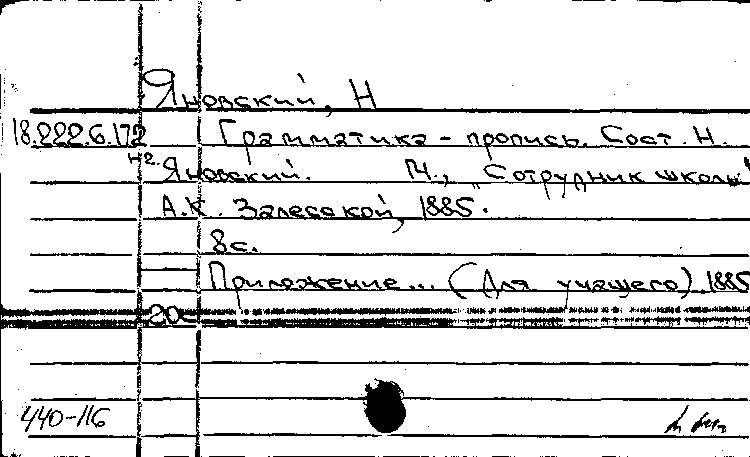 Яновский, Н
18.222.6.172 Грамматика-пропись. Сост. Н.
н2. Яновский. М., "Сотрудник школы"
А.К. Залесской, 1885.
8с.
Приложение... (Для учащего) 1885
20с
440-116